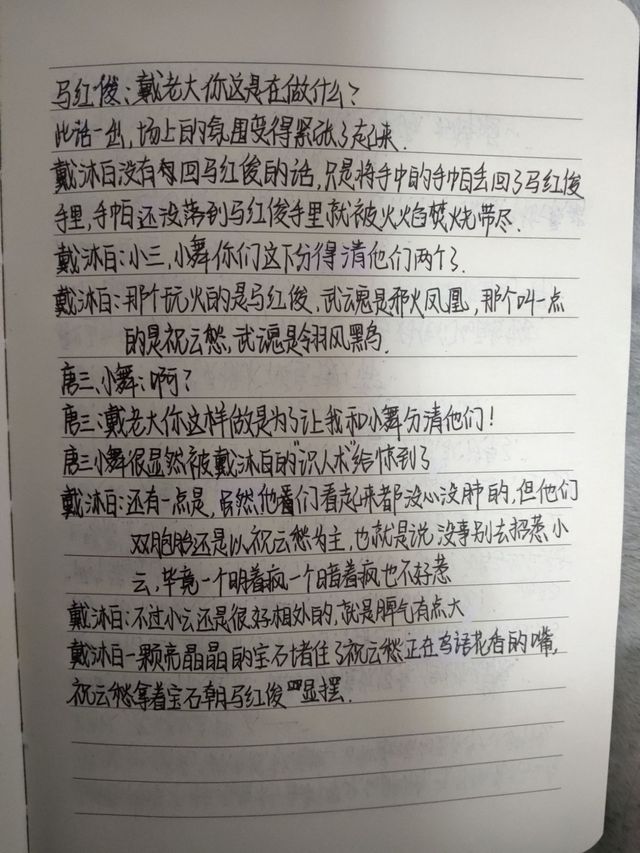 马红俊:戴老大你这是在做什么?
此话一出,场上的氛围变得紧张了起来.
戴沐白没有回马红俊的话,只是将手中的手帕丢回了马红俊
手里,手帕还没落到马红俊手里就被火焰焚烧带尽.
戴沐白:小三,小舞你们这下分得清他们两个了.
戴沐白:那个玩火的是马红俊、武魂是邪火凤凰,那个叫一点
的是祝云愁,武魂是翎羽风黑鸟.
唐三、小舞:啊?
唐三:戴老大你这样做是为了让我和小舞分清他们!
唐三小舞很显然被戴沐白的"识人术"给惊到了
戴沐白:还有一点是,居然他们看起来都没心没肺的,但他们
双胞胎还是以祝云愁为主,也就是说没事别去招惹小
云,毕竟一个明着疯一个暗着疯也不好惹
戴沐白:不过小云还是很好相处的,就是脾气有点大
戴沐白一颗亮晶晶的宝石堵住了祝云愁正在鸟语花香的嘴,
祝云愁拿着宝石朝马红俊显摆.